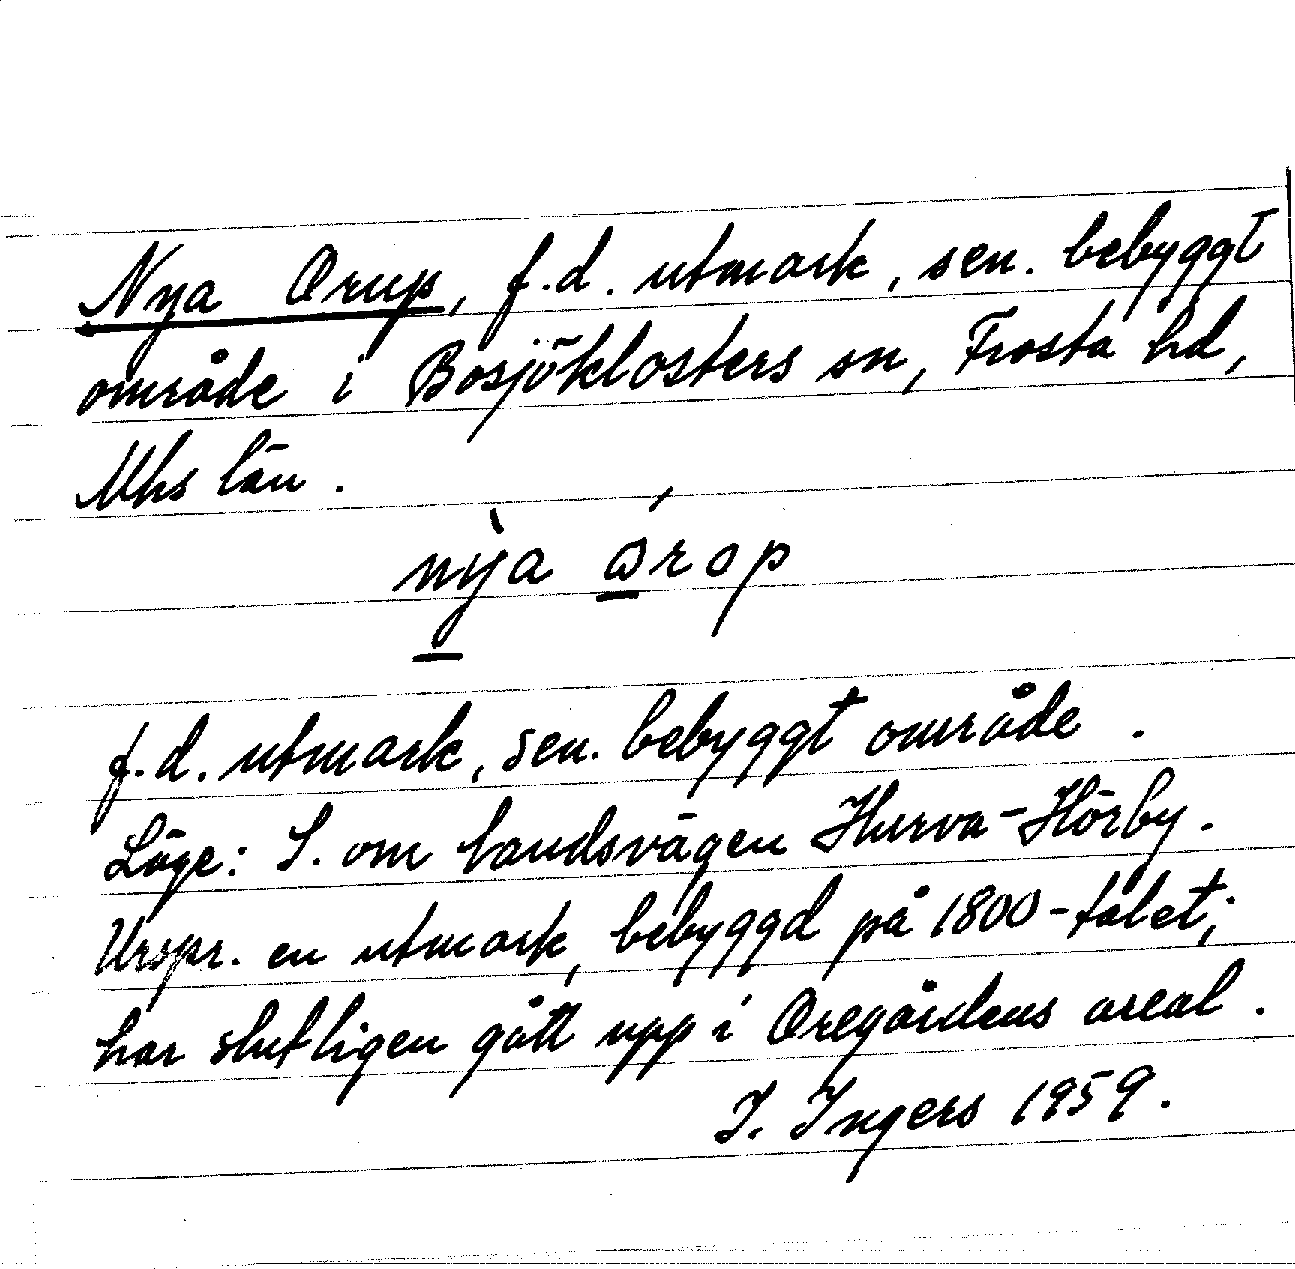 Nya Orup, f.d. utmark, sen. bebyggt
område i Bosjöklosters sn, Frosta hd,
Mhs län.
nỳa órop
f.d. utmark, sen. bebyggt område.
Läge: S. om landsvägen Hurva-Hörby.
Urspr. en utmark, bebyggd på 1800-talet;
har slutligen gått upp i Oregårdens areal.
I. Ingers 1959.